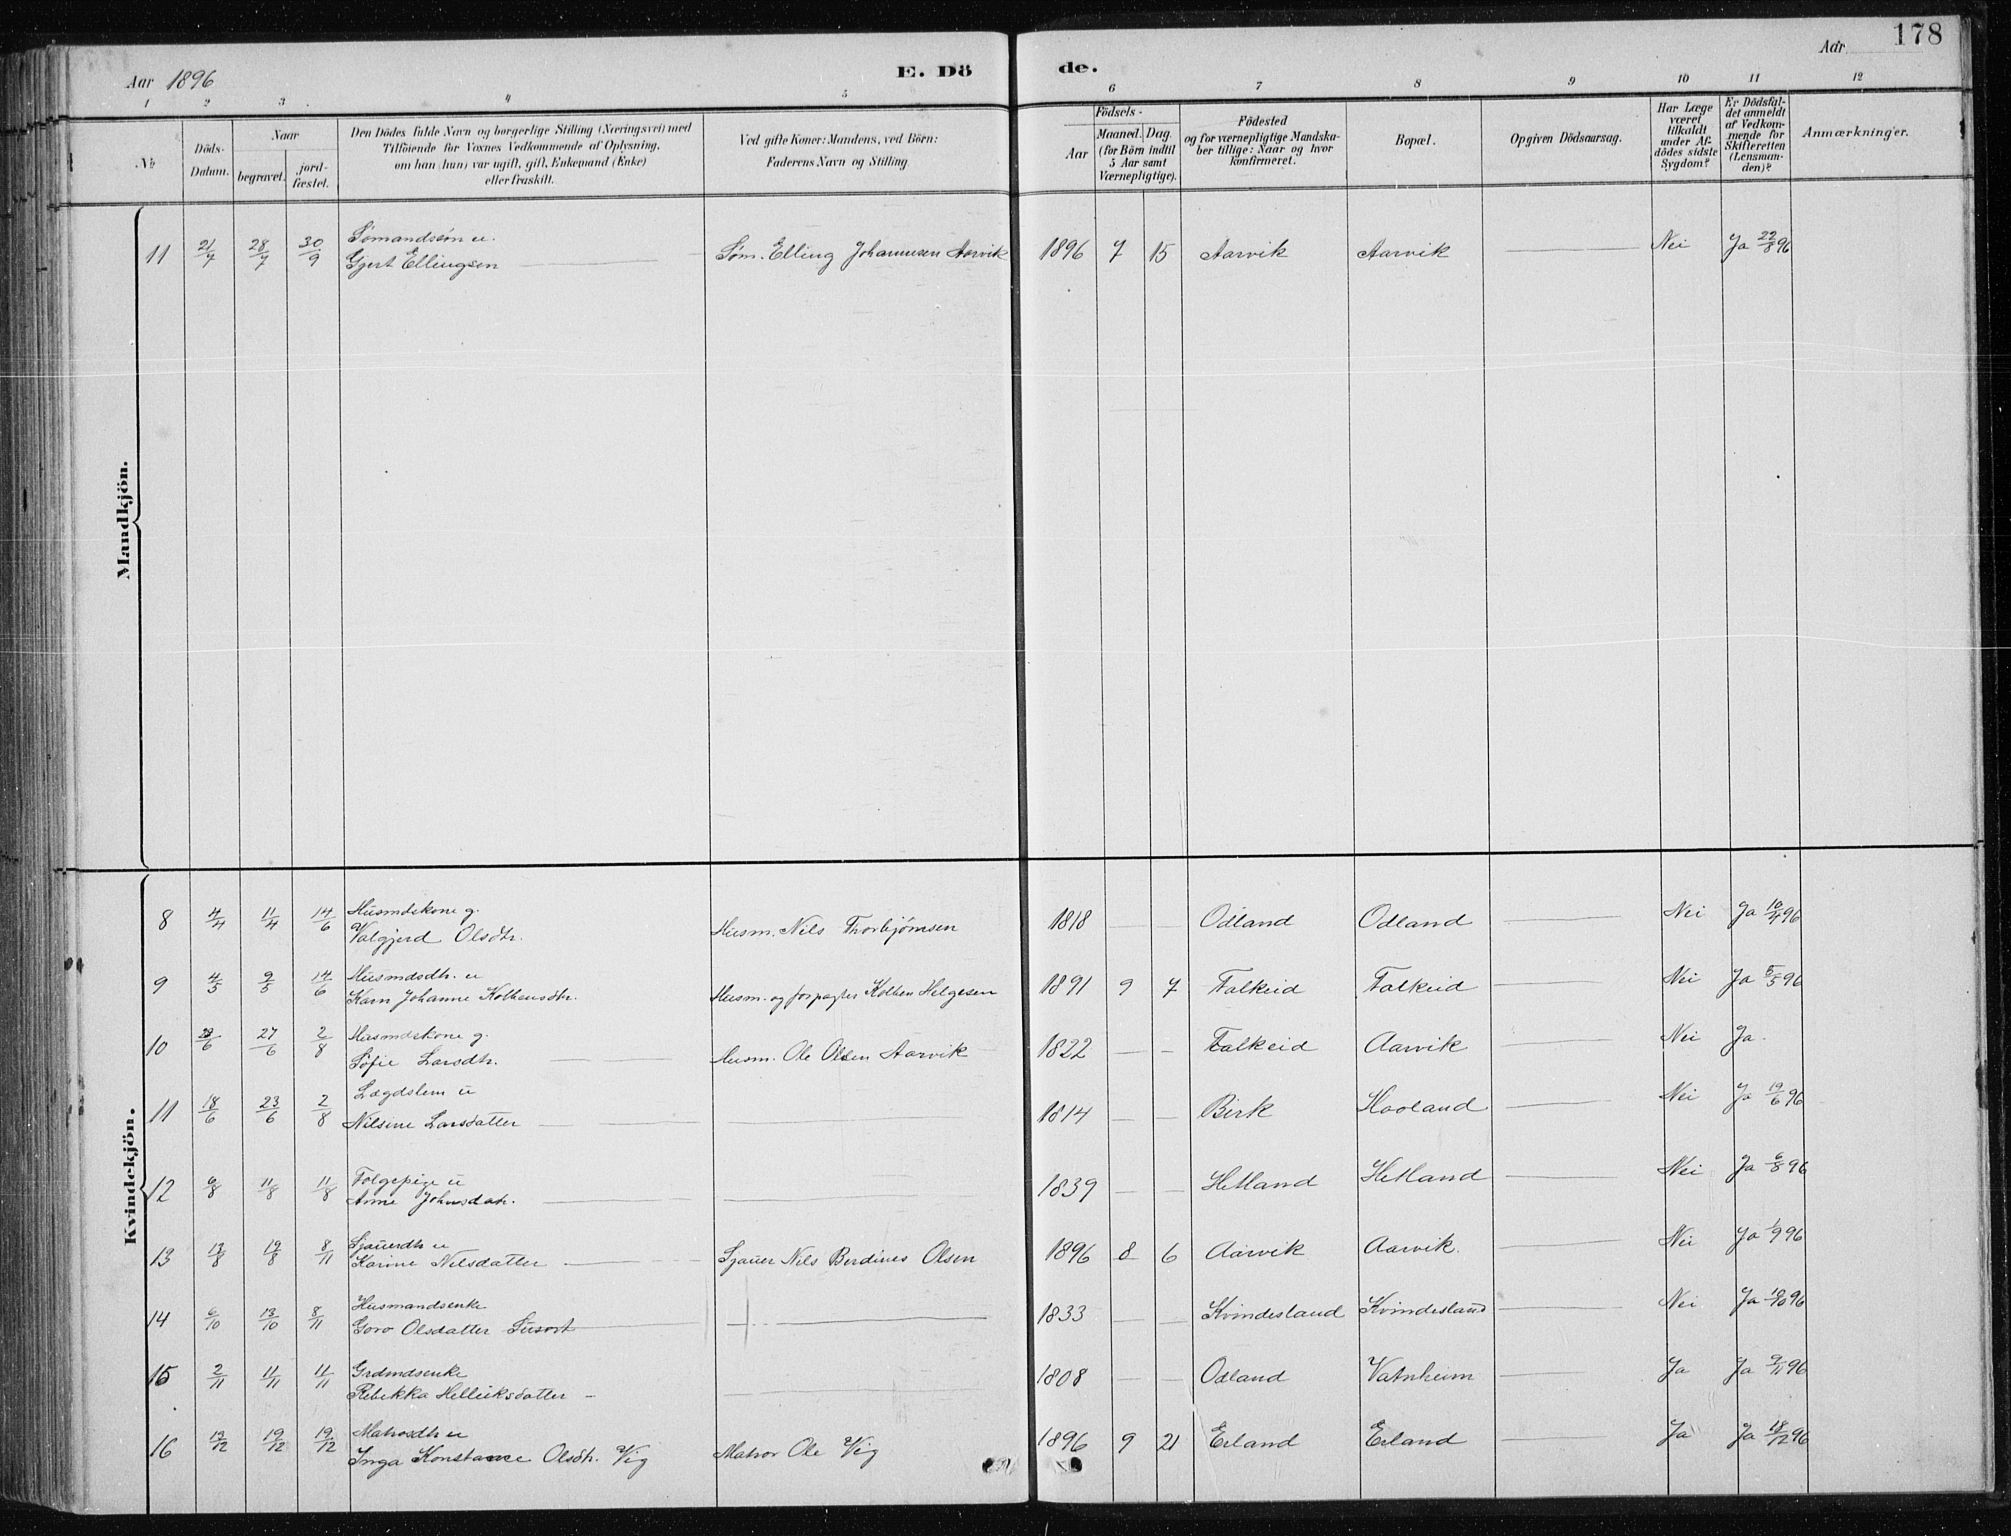 178
Aar 1896 E. Dö de. Aar
1 2 3 4 5 6 7 8 9 10 11 12
No
Döds-Datum.
Naar
begravet.
jord-fæstet.
Den Dödes fulde Navn og borgerlige Stilling (Næringsvei) med
Tilföiende for Voxnes Vedkommende af Oplysning,
om han (hun) var ugift, gift, Enkemand (Enke)
eller fraskilt.
Ved gifte Koner: Mandens, ved Börn:
Faderens Navn og Stilling
Födsels-
Aar
Maaned. Dag.
(for Börn indtil
5 Aar samt
Værnepligtige).
Födested
og for værnepligtige Mandska-
ber tillige: Naar og hvor
konfirmeret.
Bopæl.
Opgiven Dödsaarsag.
Har Læge
været
tilkaldt
under Af-
dödes sidste
Sygdom?
Er Dödsfal-
det anmeldt
af Vedkom-
mende for
Skifteretten
(Lensman-
den)?
Anmærkninger.
Mandkjön.
Sömandssön u.
11 21/7 28/7 30/9 Gjert Ellingsen Söm. Elling Johannesen Aarvik 1896 7 15 Aarvik Aarvik Nei Ja 22/8 96
Kvindekjön.
Husmdskone g.
8 4/4 11/4 14/6 Valgjerd Olsdtr. Husm. Niels Thorbjörnsen 1818 Odland Odland Nei Ja 10/4 96
Husmdsdtr. u
9 4/5 9/5 14/6 Karn Johanne Kolbensdtr. Husm. og forpagter Kolben Helgesen 1891 9 7 Falkeid Falkeid Nei Ja 5/5 96
Husmdskone g.
10 23/6 27/6 2/8 Sofie Larsdtr. Husm. Ole Olsen Aarvik 1822 Falkeid Aarvik Nei Ja.
Lægdslem u
11 18/6 23/6 2/8 Nilsine Larsdatter 1814 Birk Haaland Nei Ja 19/6 96
Folgepige u
12 6/8 11/8 11/8 Anne Johnsdatr. 1839 Hetland Hetland Nei Ja 6/8 96
Sjauerdtr u
13 13/8 19/8 8/11 Karine Nilsdatter Sjauer Nils Berdines Olsen 1896 8 6 Aarvik Aarvik. Nei Ja 1/9 96
Husmandsenke
14 6/10 13/10 8/11 Goro Olsdatter 1833 Kvindesland Kvindesland Nei Ja 10/10 96
Grdmdsenke
15 2/11 11/11 11/11 Rebekka Helleiksdatter 1808 Odland Vatnheim Ja Ja 9/11 96
Matrosdtr u
16 13/12 19/12 19/12 Inga Konstance Olsdtr. Vig Matros Ole Vig 1896 9 21 Erland Erland Ja Ja 18/12 96